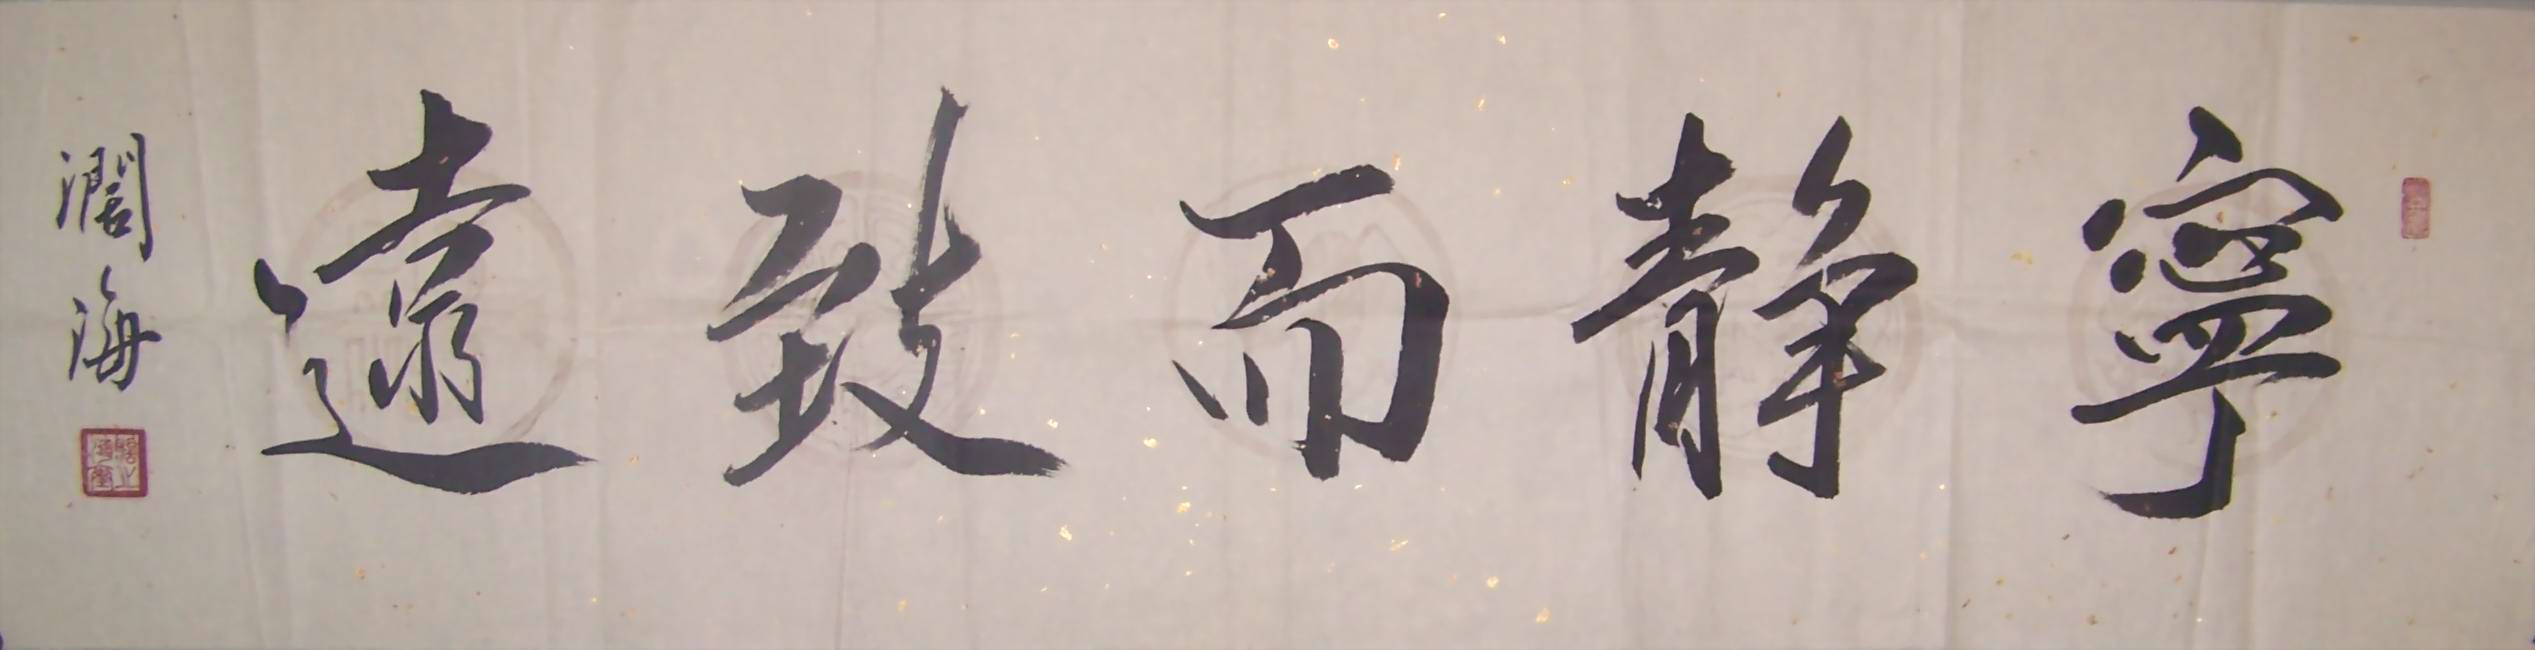 寧靜而致遠
濶海